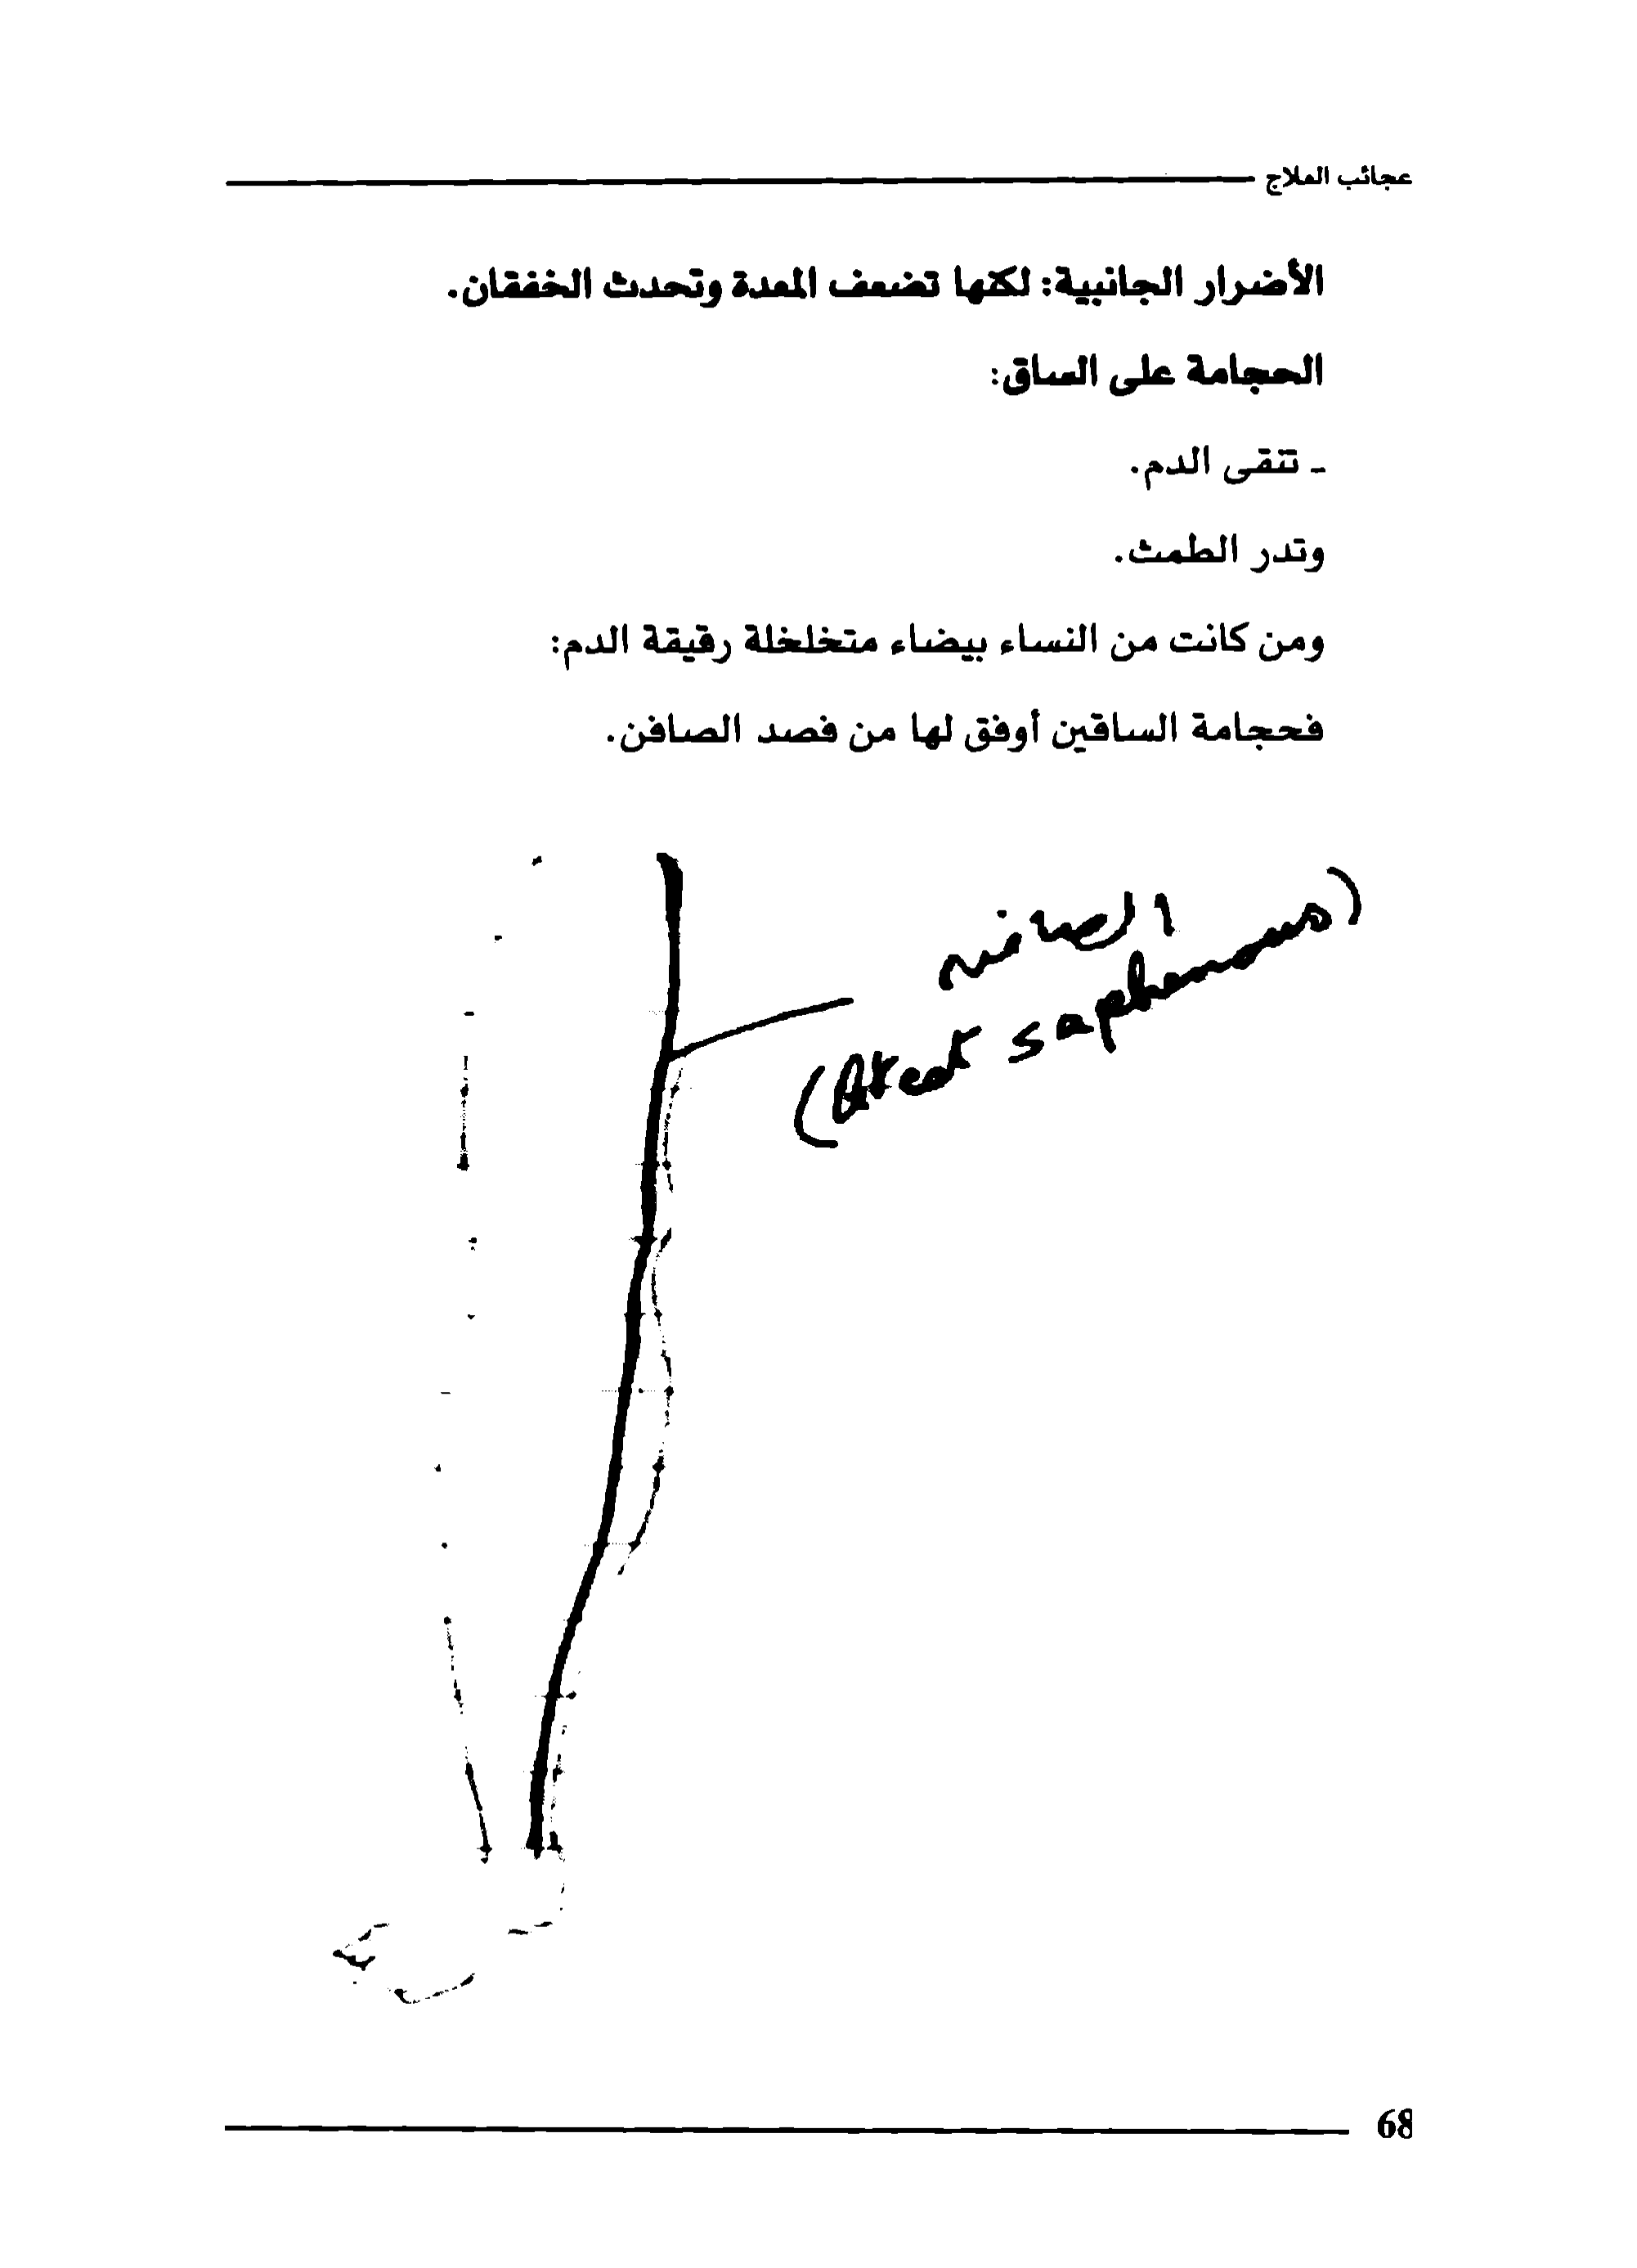 عجائب العلاج
الأضرار الجانبية: لكنها تضعف المعدة وتحدث الخفقان.
الحجامة على الساق:
ـ تنقى الدم.
وتدر الطمث.
ومن كانت من النساء بيضاء متخلخلة رقيقة الدم:
فحجامة الساقين أوفق لها من فصد الصافن.
الصافن
(Great saphenous)
68